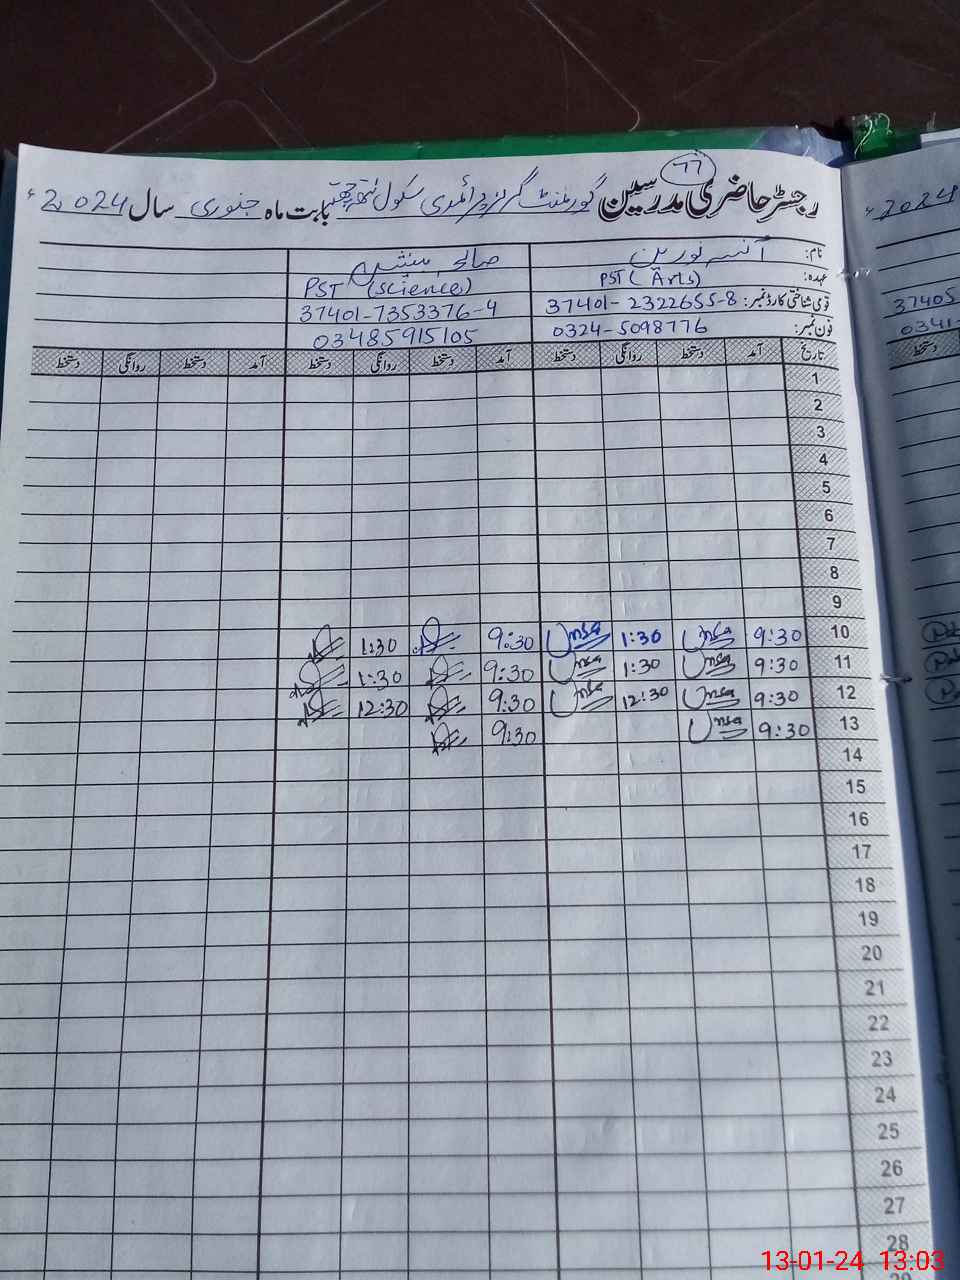 ۷۷
رجسٹر حاضری مدرسین گورنمنٹ گرلز پرائمری سکول نتھہ چھتر بابت ماہ جنوری سال 2024ء
نام: آنسہ نورین صالحہ
عہدہ: PST (Arts) PST (Science)
قومی شناختی کارڈ نمبر: 37401-2322655-8 37401-7353376-4
فون نمبر: 0324-5098776 03485915105
تاریخ آمد دستخط روانگی دستخط آمد دستخط روانگی دستخط آمد دستخط روانگی دستخط
1
2
3
4
5
6
7
8
9
10 9:30 1:30 9:30 1:30
11 9:30 1:30 9:30 1:30
12 9:30 12:30 9:30 12:30
13 9:30 9:30
14
15
16
17
18
19
20
21
22
23
24
25
26
27
28
2024ء
37405
0341-
دستخط
13-01-24 13:03